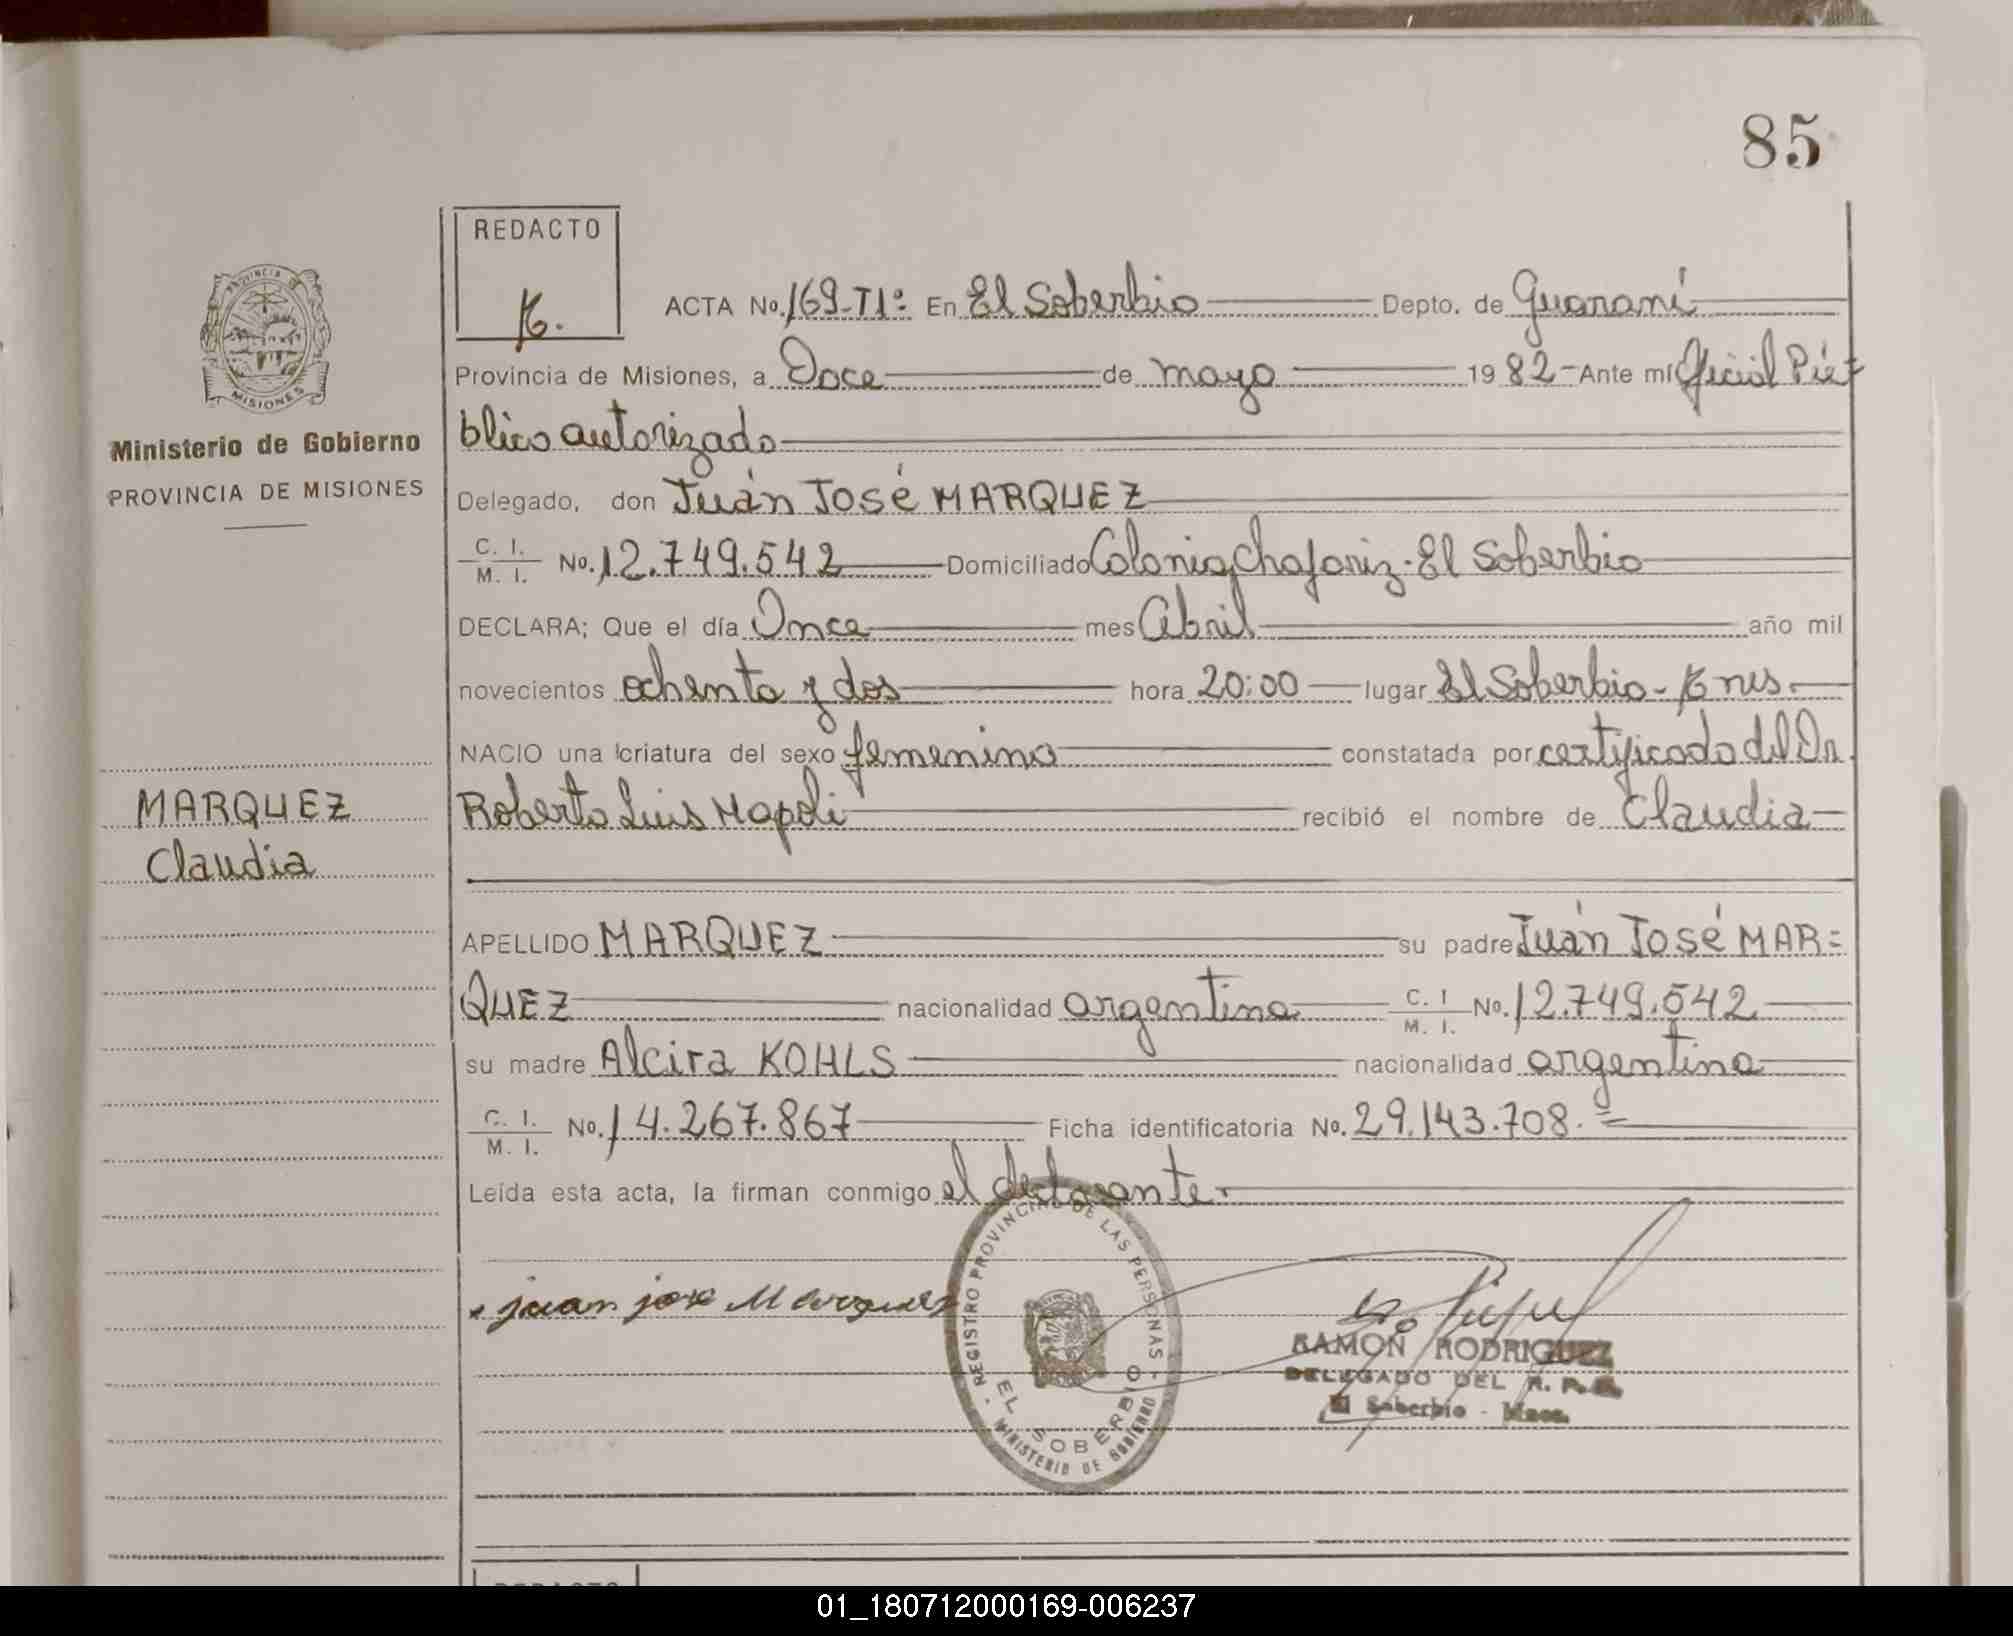 85
REDACTO
K.
PROVINCIA DE
MISIONES
Ministerio de Gobierno
PROVINCIA DE MISIONES
MARQUEZ
Claudia
ACTA No. 169-T1º En El Soberbio Depto. de Guaraní
Provincia de Misiones, a Doce de mayo 1982- Ante mi Oficial Pú=
blico autorizado
Delegado, don Juán José MARQUEZ
C. I. M. I. No. 12.749.542 Domiciliado Colonia Chafariz. El Soberbio
DECLARA; Que el día Once mes Abril año mil
novecientos ochenta y dos hora 20:00 lugar El Soberbio-
NACIO una criatura del sexo femenino constatada por certificado del Dr.
Roberto Luis Napoli recibió el nombre de Claudia
APELLIDO MARQUEZ su padre Juán José MAR=
QUEZ nacionalidad argentina C. I M. I. No. 12.749.542
su madre Alcira KOHLS nacionalidad argentina
C. I. M. I. No. 14.267.867 Ficha identificatoria No. 29.143.708.=
Leída esta acta, la firman conmigo el declarante.
juan jose Marquez
REGISTRO PROVINCIAL DE LAS PERSONAS
EL SOBERBIO
MINISTERIO DE GOBIERNO
RAMON RODRIGUEZ
DELEGADO DEL R. P. P.
El Soberbio - Mnes.
REDACTO
01_180712000169-006237